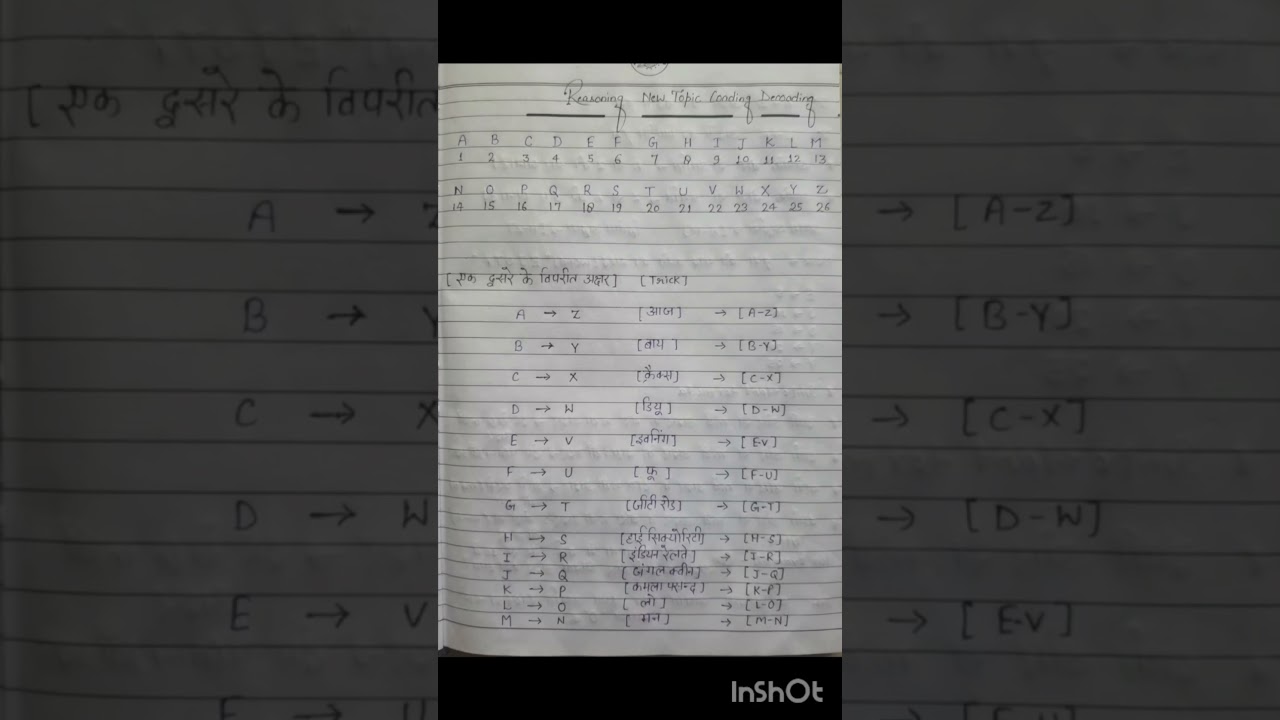 Reasoning New Topic Coading Decoading
A B C D E F G H I J K L M
1 2 3 4 5 6 7 8 9 10 11 12 13
N O P Q R S T U V W X Y Z
14 15 16 17 18 19 20 21 22 23 24 25 26
[एक दुसरे के विपरीत अक्षर] [Trick]
A → Z [आज] → [A-Z]
B → Y [बाय] → [B-Y]
C → X [क्रैक्स] → [C-X]
D → W [डियू] → [D-W]
E → V [इवनिंग] → [E-V]
F → U [फू] → [F-U]
G → T [जीटी रोड] → [G-T]
H → S [हाई सिक्योरिटी] → [H-S]
I → R [इंडियन रेलवे] → [I-R]
J → Q [जंगल क्वीन] → [J-Q]
K → P [कमला पसन्द] → [K-P]
L → O [लो] → [L-O]
M → N [मन] → [M-N]
InShOt